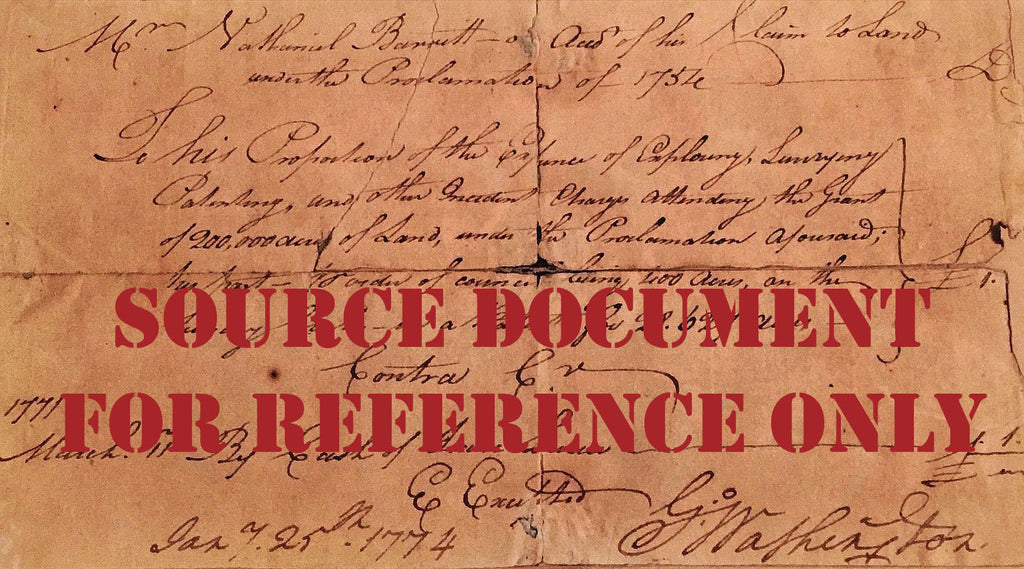 Mr. Nathaniel Barrett on Acct. of his Claim to Land
under the Proclamation of 1754 D
To his Proportion of the Expence of Exploring, Surveying
Patenting, and other Incident Charges Attending the Grant
of 200,000 acres of Land, under the Proclamation aforesaid;
order of council being 400 Acres, on the £ 1.
SOURCE DOCUMENT
Contra Cr
1771
FOR REFERENCE ONLY
March. By Cash of
E Excepted
Jany. 25th. 1774 Go: Washington